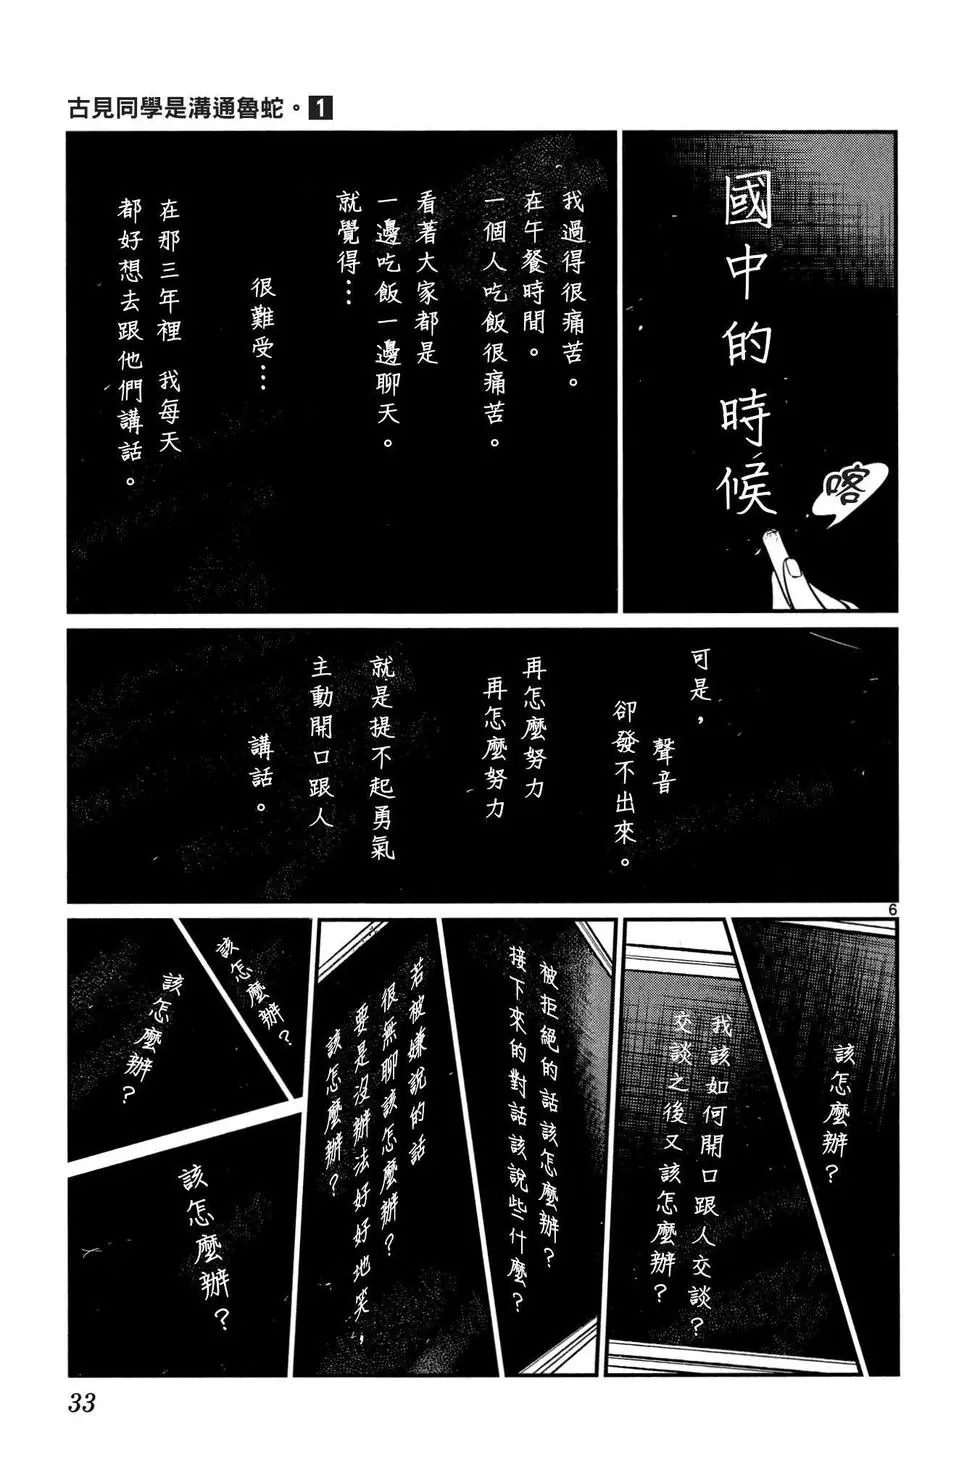 古見同學是溝通魯蛇。1
國中的時候
喀
我過得很痛苦。
在午餐時間。
一個人吃飯很痛苦。
看著大家都是
一邊吃飯一邊聊天。
就覺得…
很難受…
在那三年裡 我每天
都好想去跟他們講話。
可是，
聲音
卻發不出來。
再怎麼努力
再怎麼努力
就是提不起勇氣
主動開口跟人
講話。
6
該怎麼辦？
我該如何開口跟人交談？
交談之後又該怎麼辦？
被拒絕的話該怎麼辦？
接下來的對話該說些什麼？
若被嫌說的話
很無聊該怎麼辦？
要是沒辦法好好地笑，
該怎麼辦？
該怎麼辦？
該怎麼辦？
該怎麼辦？
33